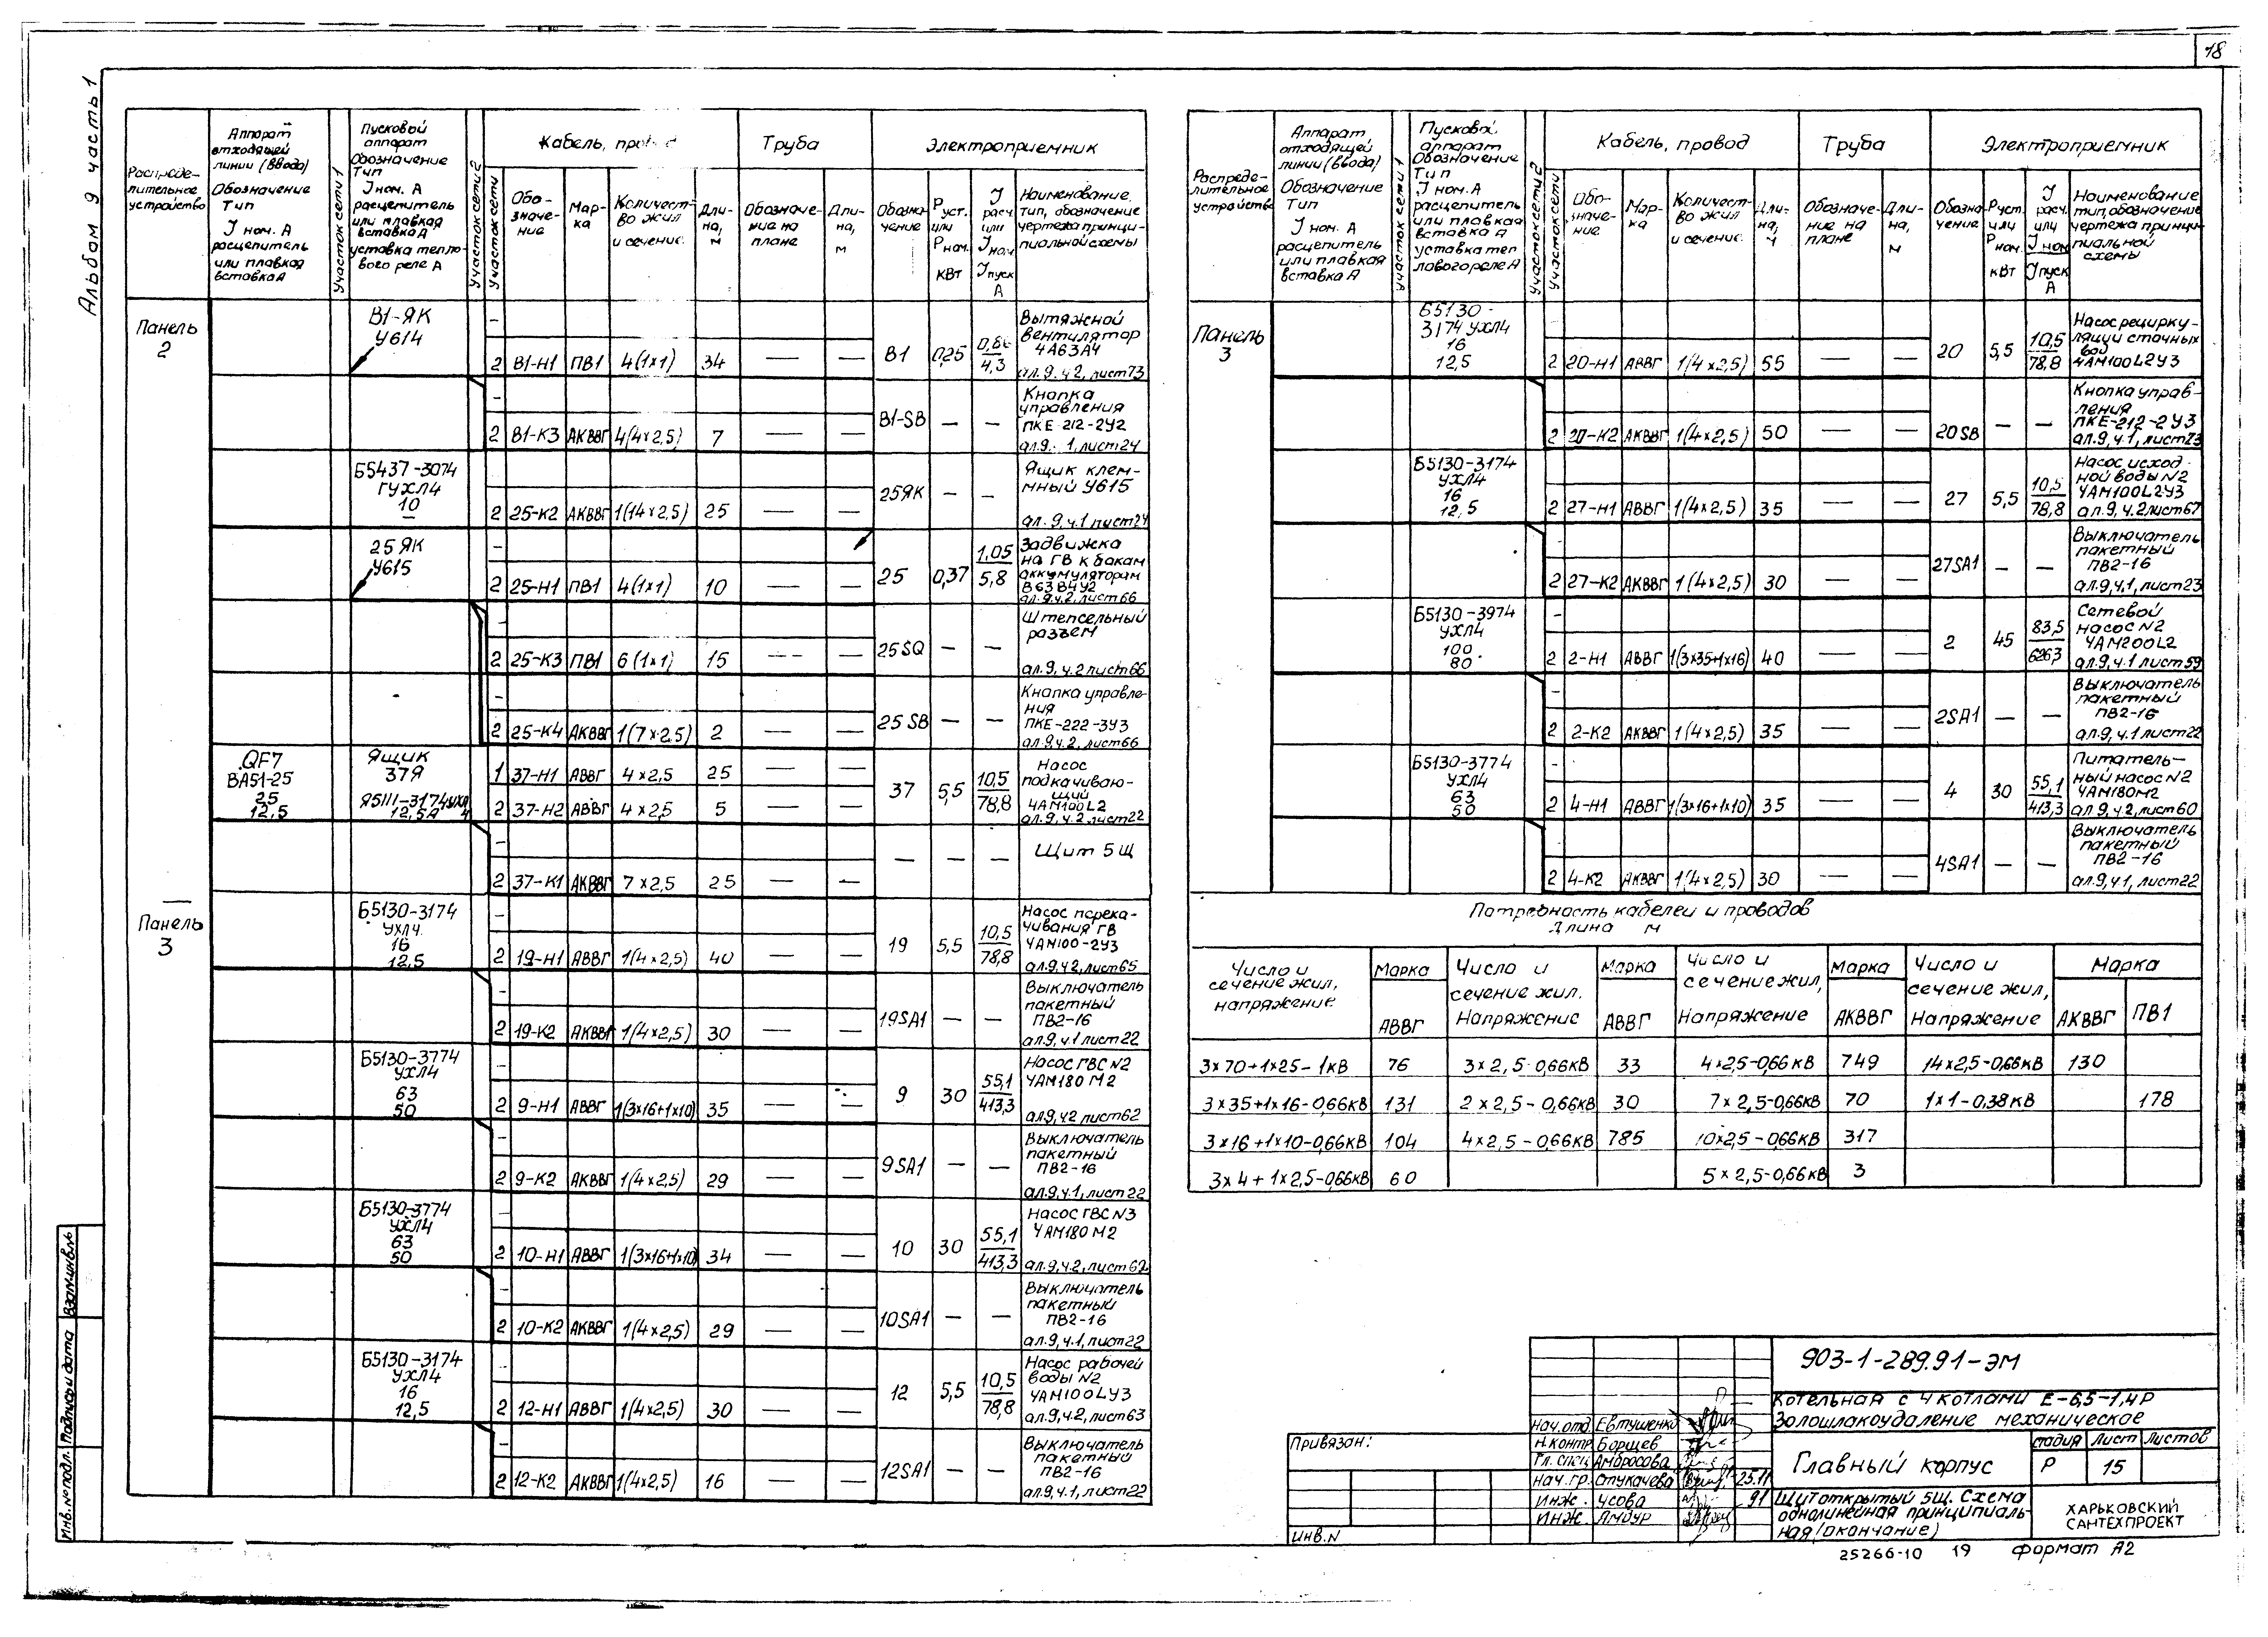 18
Альбом 9 часть 1
Распреде-
лительное
устройство
Аппарат
отходящей
линии (ввода)
Обозначение
Тип
I ном. А
расцепитель
или плавкая
вставка А
Участок сети 1
Пусковой
аппарат
Обозначение
Тип
I ном. А
расцепитель
или плавкая
вставка А
уставка тепло-
вого реле А
Участок сети 2
Участок сети
Кабель,
Обо-
значе-
ние
Мар-
ка
Количест-
во жил
и сечение
Дли-
на,
м
Труба
Обозначе-
ние на
плане
Дли-
на,
м
Электроприемник
Обозна-
чение
Р уст.
или
Р ном.
кВт
I
расч.
или
I ном
I пуск
А
Наименование,
тип, обозначение
чертежа принци-
пиальной схемы
Панель
2
В1-ЯК
У614
-
2 В1-Н1 ПВ1 4(1×1) 34 — — В1 0,25 4,3
Вытяжной
вентилятор
4А63А4
ал.9.ч2, лист73
-
2 В1-К3 АКВВГ 4(4×2,5) 7 — — В1-SB — —
Кнопка
управления
ПКЕ-212-2У2
ал.9.- 1, лист24
Б5437-3074
ГУХЛ4
10
—
-
2 25-К2 АКВВГ 1(14×2,5) 25 — — 25ЯК — —
Ящик клем-
мный У615
ал.9,ч.1 лист24
25 ЯК
У615
-
2 25-Н1 ПВ1 4(1×1) 10 — — 25 0,37 1,05 5,8
Задвижка
на ГВ к бакам
аккумуляторам
В63В4У2
ал.9.ч.2, лист66
-
2 25-К3 ПВ1 6(1×1) 15 — — 25SQ — —
Штепсельный
разъем
ал.9,ч.2 лист66
-
2 25-К4 АКВВГ 1(7×2,5) 2 — — 25SB — —
Кнопка управле-
ния
ПКЕ-222-3У3
ал.9.ч.2, лист66
QF7
ВА51-25
25
12,5
Ящик
37Я
Я5111-3174УХЛ
4
12,5А
1 37-Н1 АВВГ 4×2,5 25 — —
2 37-Н2 АВВГ 4×2,5 5 — — 37 5,5 10,5 78,8
Насос
подкачиваю-
щий
4АМ100L2
ал.9,ч.2 лист22
-
2 37-К1 АКВВГ 7×2,5 25 — — — — —
Щит 5Щ
—
Панель
3
Б5130-3174
УХЛ4
16
12,5
-
2 19-Н1 АВВГ 1(4×2,5) 40 — — 19 5,5 10,5 78,8
Насос перека-
чивания ГВ
4АМ100-2У3
ал.9,ч2,лист65
-
2 19-К2 АКВВГ 1(4×2,5) 30 — — 19SA1 — —
Выключатель
пакетный
ПВ2-16
ал.9,ч.1 лист22
Б5130-3774
УХЛ4
63
50
-
2 9-Н1 АВВГ 1(3×16+1×10) 35 — — 9 30 55,1 413,3
Насос ГВС N2
4АМ180 М2
ал.9,ч2 лист62
-
2 9-К2 АКВВГ 1(4×2,5) 29 — — 9SA1 — —
Выключатель
пакетный
ПВ2-16
ал.9,ч.1, лист22
Б5130-3774
УХЛ4
63
50
-
2 10-Н1 АВВГ 1(3×16+1×10) 34 — — 10 30 55,1 413,3
Насос ГВС N3
4АМ180 М2
ал.9,ч.2, лист62
-
2 10-К2 АКВВГ 1(4×2,5) 29 — — 10SA1 — —
Выключатель
пакетный
ПВ2-16
ал.9,ч.1, лист22
Б5130-3174
УХЛ4
16
12,5
-
2 12-Н1 АВВГ 1(4×2,5) 30 — — 12 5,5 10,5 78,8
Насос рабочей
воды N2
4АМ100LУ3
ал.9,ч.2, лист63
-
2 12-К2 АКВВГ 1(4×2,5) 16 — — 12SA1 — —
Выключатель
пакетный
ПВ2-16
ал.9,ч.1, лист22
Распреде-
лительное
устройств
Аппарат
отходящей
линии (ввода)
Обозначение
Тип
I ном. А
расцепитель
или плавкая
вставка А
Участок сети 1
Пусковой
аппарат
Обозначение
Тип
I ном. А
расцепитель
или плавкая
вставка А
уставка теп
лового реле А
Участок сети 2
Участок сети
Кабель, провод
Обо-
значе-
ние
Мар-
ка
Количест-
во жил
и сечение
Дли-
на,
Труба
Обозначе-
ние на
плане
Дли-
на,
м
Электроприемник
Обозна-
чение
Р уст.
или
Р ном.
кВт
I
расч.
или
I ном
I пуск
А
Наименование
тип, обозначение
чертежа принци-
пиальной
схемы
Панель
3
Б5130-
3174 УХЛ4
16
12,5
-
2 20-Н1 АВВГ 1(4×2,5) 55 — — 20 5,5 10,5 78,8
Насос рецирку-
ляции сточных
вод
4АМ100L2У3
-
2 20-К2 АКВВГ 1(4×2,5) 50 — — 20SB — —
Кнопка управ-
ления
ПКЕ-212-2У3
ал.9,ч.1, лист23
Б5130-3174
УХЛ4
16
12,5
-
2 27-Н1 АВВГ 1(4×2,5) 35 — — 27 5,5 10,5 78,8
Насос исход-
ной воды N2
4АМ100L2У3
ал.9,ч.2лист67
-
2 27-К2 АКВВГ 1(4×2,5) 30 — — 27SA1 — —
Выключатель
пакетный
ПВ2-16
ал.9,ч,1, лист23
Б5130-3974
УХЛ4
100
80
-
2 2-Н1 АВВГ 1(3×35+1×16) 40 — — 2 45 83,5 626,3
Сетевой
насос N2
4АМ200L2
ал.9,ч.1 лист59
-
2 2-К2 АКВВГ 1(4×2,5) 35 — — 2SA1 — —
Выключатель
пакетный
ПВ2-16
ал.9,ч.1 лист22
Б5130-3774
УХЛ4
63
50
-
2 4-Н1 АВВГ 1(3×16+1×10) 35 — — 4 30 55,1 413,3
Питатель-
ный насос N2
4АМ180М2
ал 9,ч.2, лист60
-
2 4-К2 АКВВГ 1(4×2,5) 30 — — 4SA1 — —
Выключатель
пакетный
ПВ2-16
ал.9,ч1, лист22
Потребность кабелей и проводов
Длина м
Число и
сечение жил,
напряжение
Марка
АВВГ
Число и
сечение жил.
Напряжение
Марка
АВВГ
Число и
сечение жил,
Напряжение
Марка
АКВВГ
Число и
сечение жил,
Напряжение
Марка
АКВВГ ПВ1
3×70+1×25-1кВ 76 3×2,5-0,66кВ 33 4×2,5-0,66кВ 749 14×2,5-0,66кВ 130
3×35+1×16-0,66кВ 131 2×2,5-0,66кВ 30 7×2,5-0,66кВ 70 1×1-0,38кВ 178
3×16+1×10-0,66кВ 104 4×2,5-0,66кВ 785 10×2,5-0,66кВ 317
3×4+1×2,5-0,66кВ 60 5×2,5-0,66кВ 3
903-1-289.91-ЭМ
Котельная с 4 котлами Е-6,5-1,4Р
Золошлакоудаление механическое
Привязан:
Инв.N
Нач.отд. Евтушенко
Н.контр. Борщев
Гл.спец. Амбросова
Нач.гр. Стукачева 25.11
Инж. Усова 91
Инж. Ямбур
Главный корпус
стадия Лист Листов
Р 15
Щит открытый 5Щ. Схема
однолинейная принципиаль-
ная (окончание)
ХАРЬКОВСКИЙ
САНТЕХПРОЕКТ
25266-10 19 Формат А2
Инв.№подл. Подпись и дата Взам.инв№